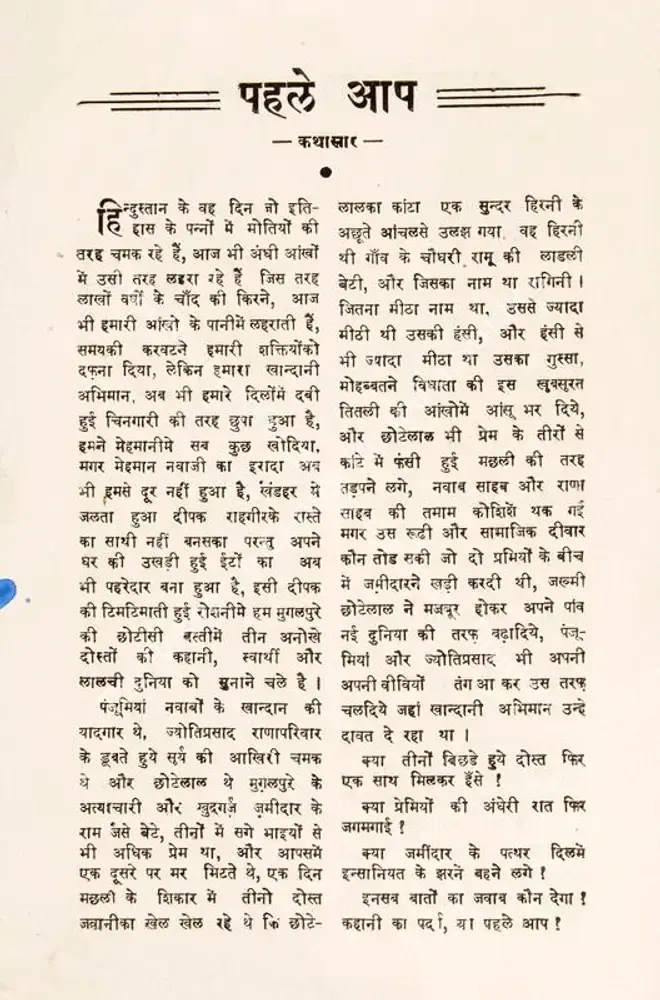 पहले आप
— कथासार —
हिन्दुस्तान के वह दिन जो इति-
हास के पन्नों में मोतियों की
तरह चमक रहे हैं, आज भी अंधी आंखों
में उसी तरह लहरा रहे हैं जिस तरह
लाखों वर्षों के चाँद की किरने, आज
भी हमारी आंखो के पानीमें लहराती हैं,
समयकी करवटने हमारी शक्तियोंको
दफ़ना दिया, लेकिन हमारा खान्दानी
अभिमान, अब भी हमारे दिलोंमें दबी
हुई चिनगारी की तरह छुपा हुआ है,
हमने मेहमानीमे सब कुछ खोदिया,
मगर मेहमान नवाजी का इरादा अब
भी हमसे दूर नहीं हुआ है, खंडहर ये
जलता हुआ दीपक राहगीरके रास्ते
का साथी नहीं बनसका परन्तु अपने
घर की उखड़ी हुई ईटों का अब
भी पहरेदार बना हुआ है, इसी दीपक
की टिमटिमाती हुई रोशनीमे हम मुगलपुरे
की छोटीसी बस्तीमें तीन अनोखे
दोस्तों की कहानी, स्वार्थी और
लालची दुनिया को सुनाने चले है ।
पंजूमियां नवाबों के खान्दान की
यादगार थे, ज्योतिप्रसाद राणापरिवार
के डूबते हुये सूर्य की आखिरी चमक
थे और छोटेलाल थे मुगलपुरे के
अत्याचारी और खुदगर्ज़ ज़मीदार के
राम जैसे बेटे, तीनों में सगे भाइयों से
भी अधिक प्रेम था, और आपसमें
एक दूसरे पर मर मिटते थे, एक दिन
मछली के शिकार में तीनो दोस्त
जवानीका खेल खेल रहे थे कि छोटे-
लालका कांटा एक सुन्दर हिरनी के
अछूते आंचलसे उलझ गया, वह हिरनी
थी गाँव के चौधरी रामू की लाडली
बेटी, और जिसका नाम था रागिनी ।
जितना मीठा नाम था, उससे ज्यादा
मीठी थी उसकी हंसी, और हंसी से
भी ज्यादा मीठा था उसका गुस्सा,
मोहब्बतने विधाता की इस खुबसुरत
तितली की आंखोमें आंसू भर दिये,
और छोटेलाल भी प्रेम के तीरों से
कांटे में फंसी हुई मछली की तरह
तड़पने लगे, नवाब साहब और राणा
साहब की तमाम कोशिशें थक गई
मगर उस रूढी और सामाजिक दीवार
कौन तोड सकी जो दो प्रमियों के बीच
में जमींदारने खड़ी करदी थी, जख्मी
छोटेलाल ने मजबूर होकर अपने पांव
नई दुनिया की तरफ़ बढ़ादिये, पंजू-
मियां और ज्योतिप्रसाद भी अपनी
अपनी वीवियों तंग आ कर उस तरफ़
चलदिये जहां खान्दानी अभिमान उन्हे
दावत दे रहा था ।
क्या तीनों बिछडे हुये दोस्त फिर
एक साथ मिलकर हँसे ?
क्या प्रेमियों की अंधेरी रात फिर
जगमगाई ?
क्या जमींदार के पत्थर दिलमें
इन्सानियत के झरने बहने लगे ?
इनसब बातों का जवाब कौन देगा ?
कहानी का पर्दा, या पहले आप ?